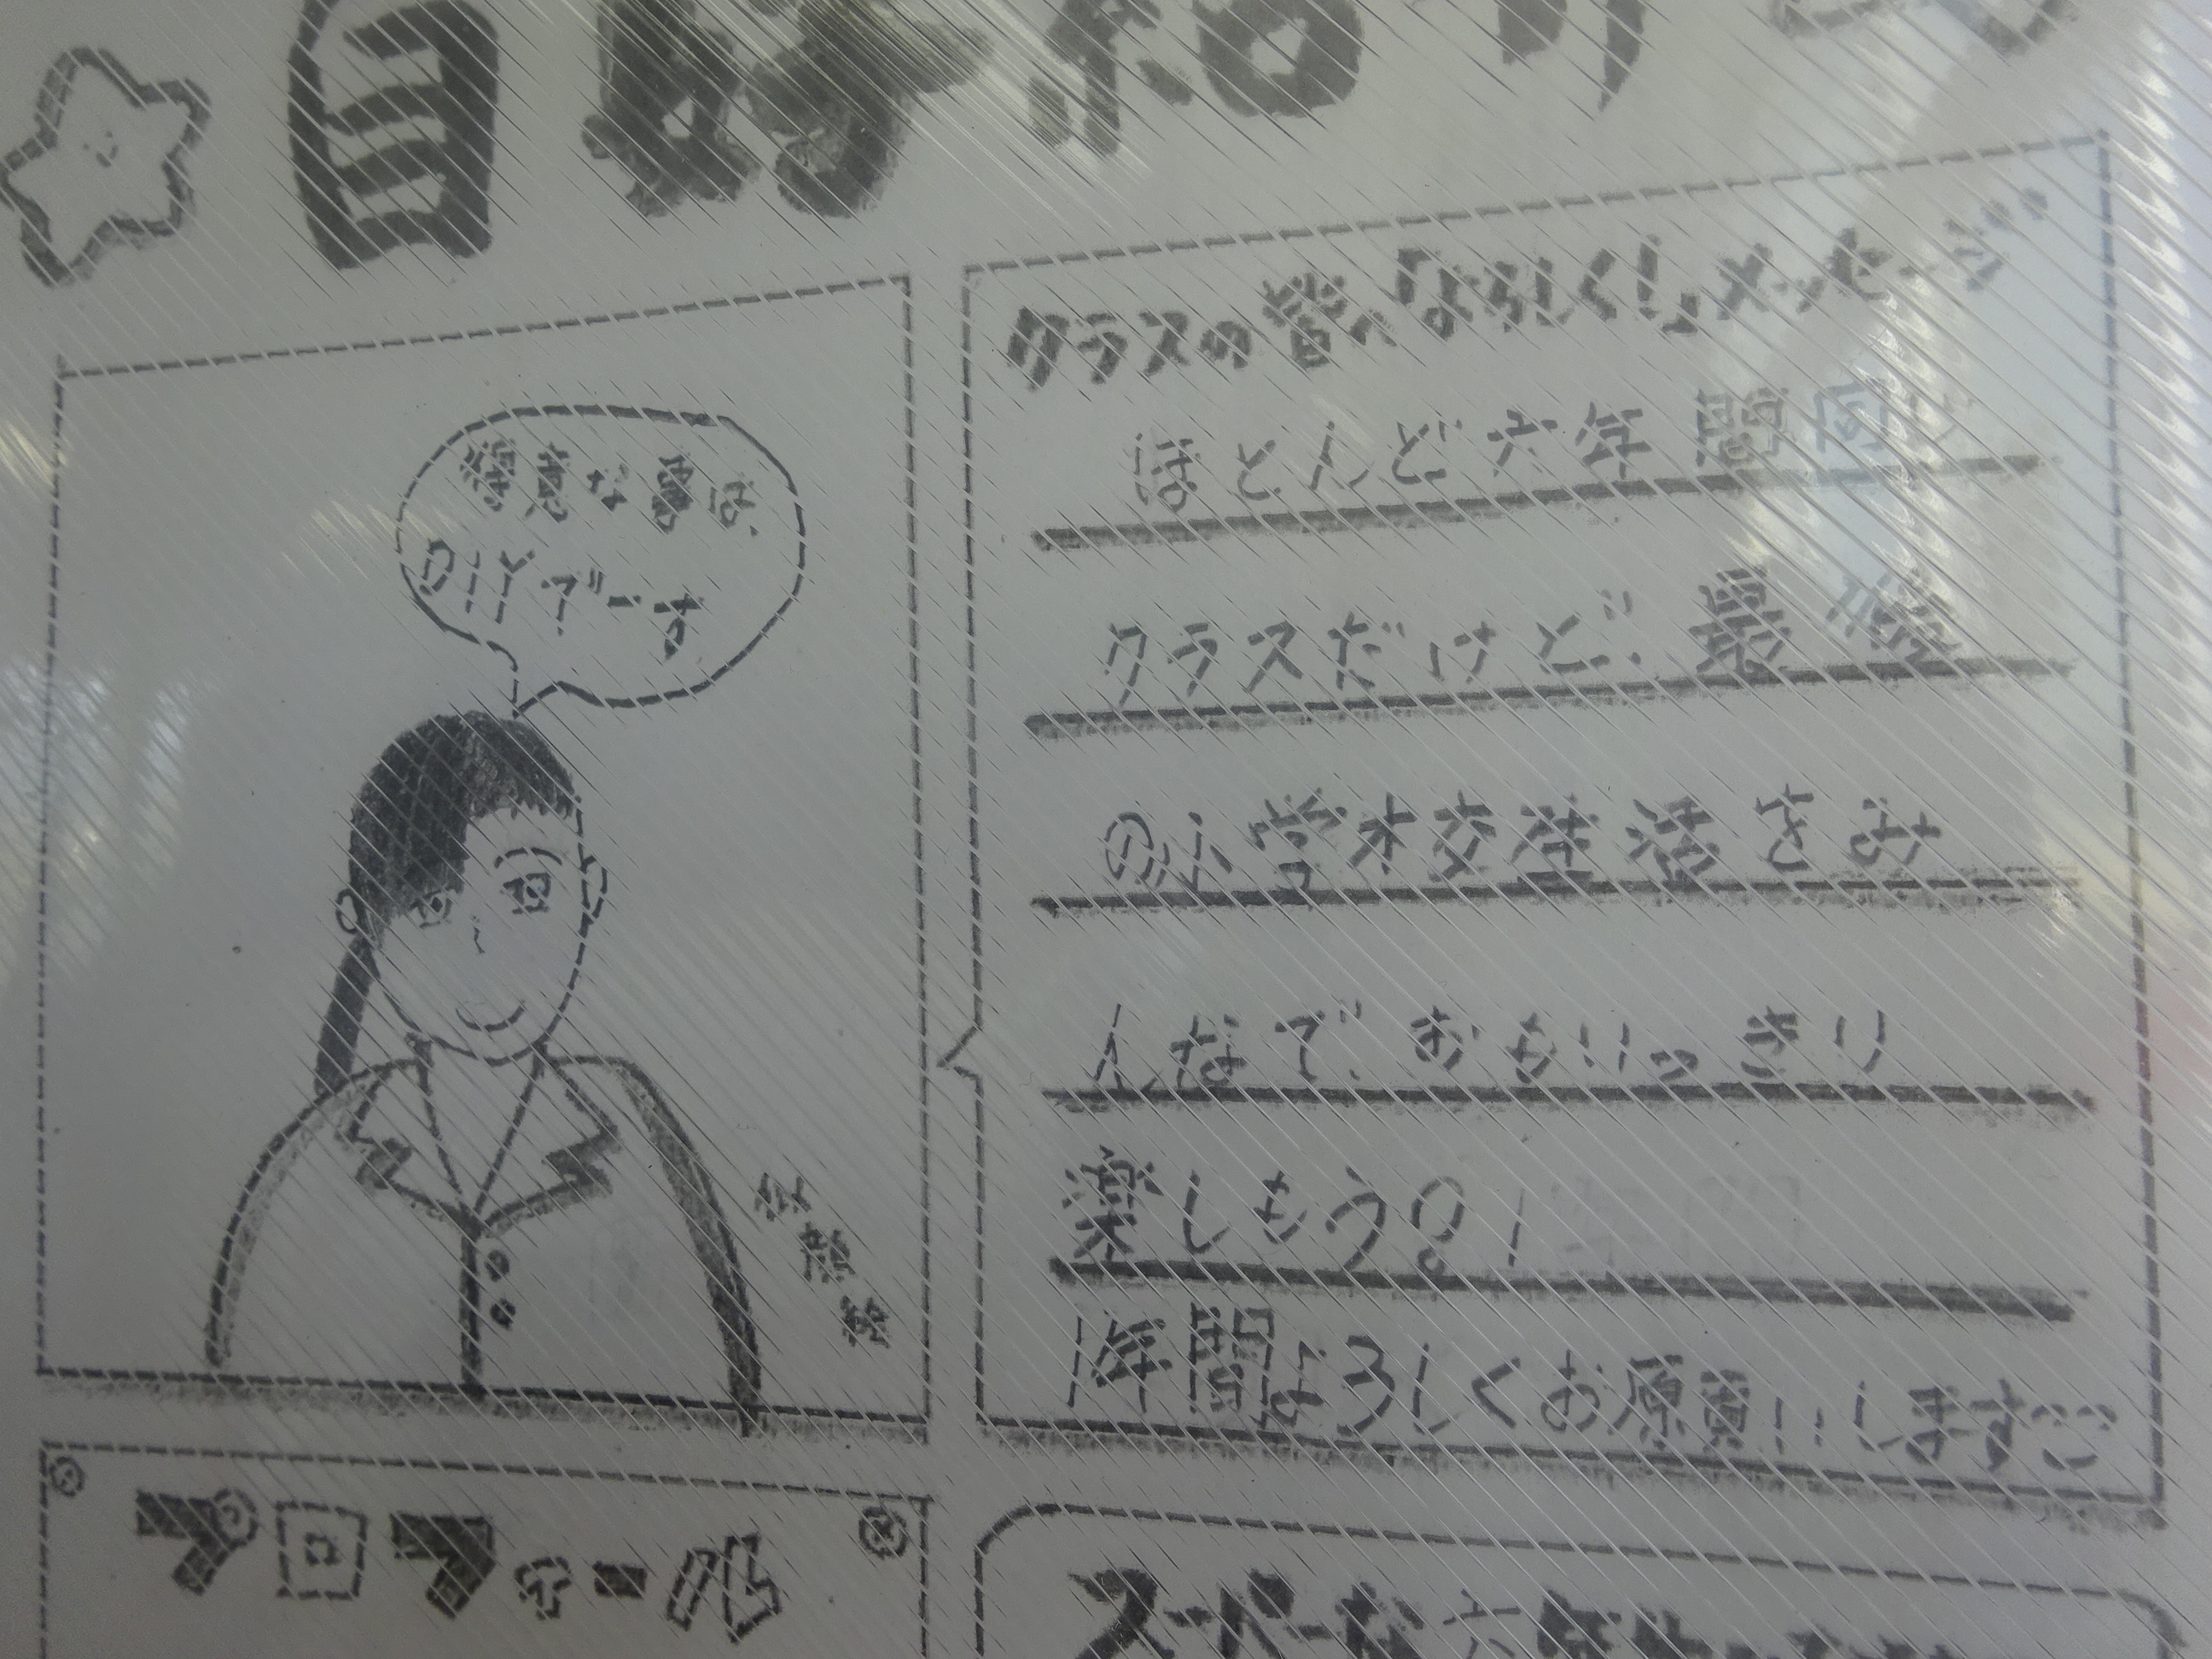 クラスの皆へ「よろしく!」メッセージ
ほとんど六年間同じ
得意な事は、
DIYでーす
クラスだけど、最後
の小学校生活をみ
んなでおもいっきり
楽しもう!
似顔絵
1年間よろしくお願いします
プロフィール
スーパーな六年生